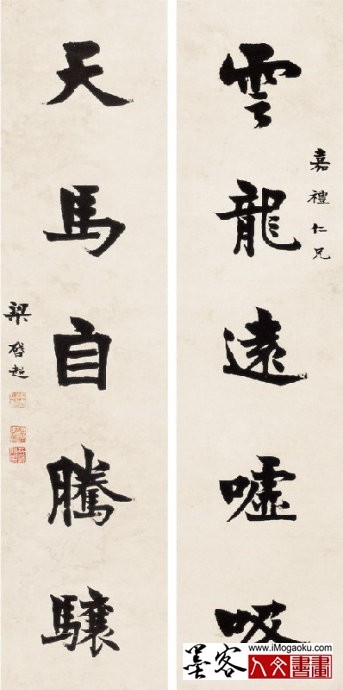 雲龍遠噓吸
嘉禮仁兄
天馬自騰驤
梁啓超
墨客
www.iMogaoku.com
人文書畫